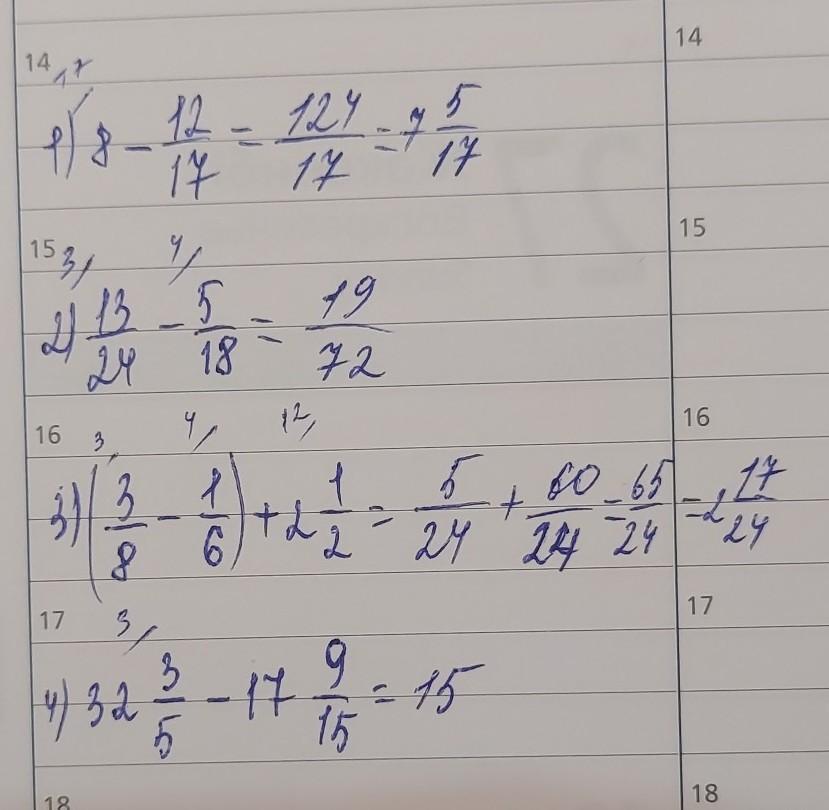 14 14
17
1) 8 - 12/17 = 124/17 = 7 5/17
15 15
3 4
2) 13/24 - 5/18 = 19/72
16 16
3 4 12
3) (3/8 - 1/6) + 2 1/2 = 5/24 + 60/24 = 65/24 = 2 17/24
17 17
3
4) 32 3/5 - 17 9/15 = 15
18 18